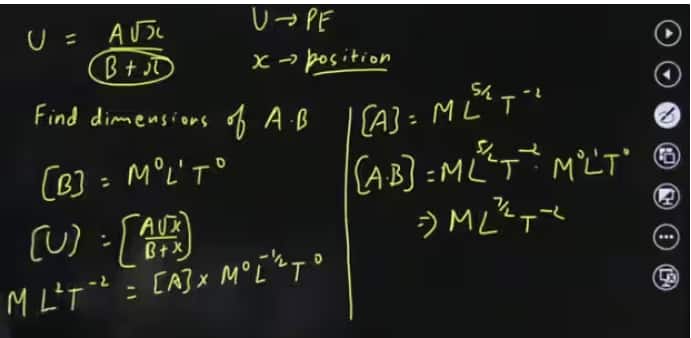 U = A√x / B + x
U → PE
x → position
Find dimensions of A.B
[B] = M⁰L¹T⁰
[U] = [A√x / B + x]
ML²T⁻² = [A] × M⁰L⁻¹ᐟ²T⁰
[A] = ML⁵ᐟ²T⁻²
[A.B] = ML⁵ᐟ²T⁻² · M⁰L¹T⁰
⇒ ML⁷ᐟ²T⁻²